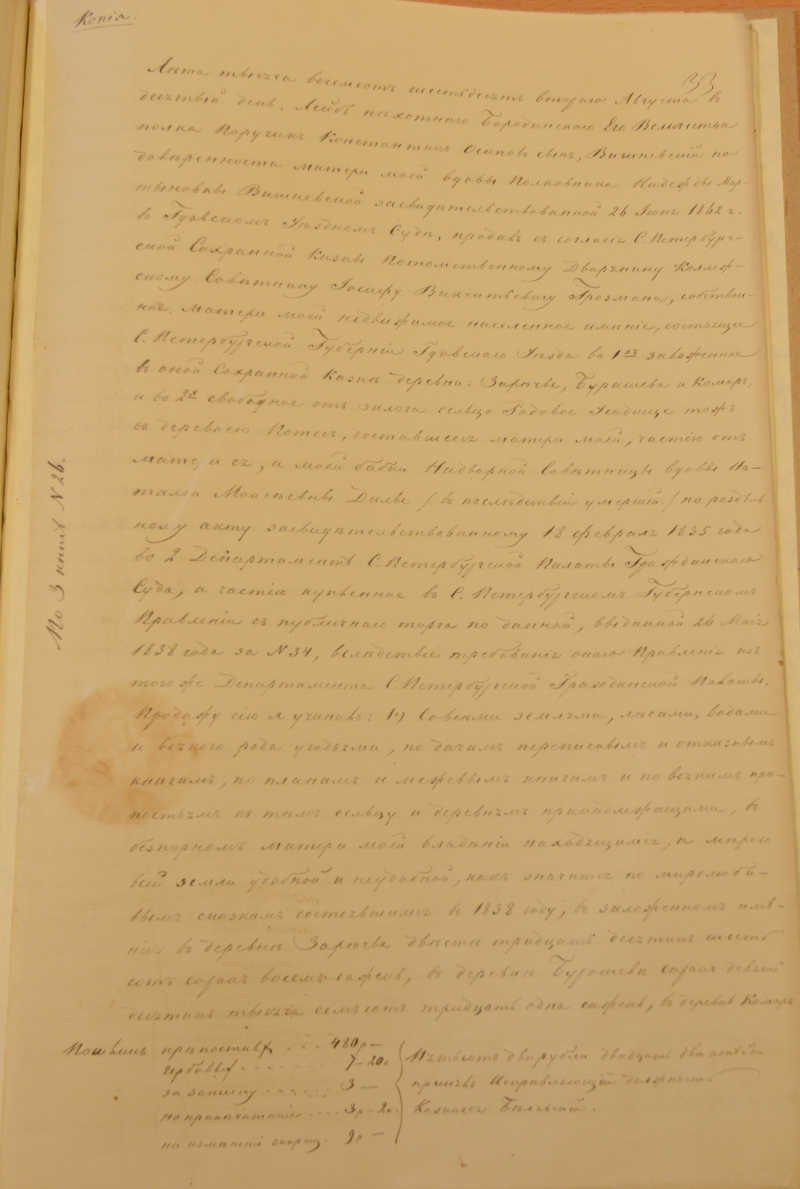 Копія.
33
Лѣта тысяча восемсотъ шестьдесятъ втораго Августа въ
десятый день, Лейбъ пѣхотнаго Бородинскаго Его Величества
полка Поручикъ Константинъ Осиповъ сынъ, Вишневскій по
довѣренности матери моей вдовы Полковника Надежды Мар-
тыновны Вишневской засвидѣтельствованной 26 Іюня 1862 г.
въ Гдовскомъ Уѣздномъ Судѣ, продалъ съ согласія С.Петербург-
ской Сохранной Казны Потомственному Дворянину Коллеж-
скому Совѣтнику Іосифу Викентьевичу Грозмани, собствен-
ное, матери моей недвижимое населенное имѣніе, состоящее
С.Петербургской Губерніи Гдовскаго Уѣзда во 1хъ заложенное
въ оной Сохранной Казнѣ деревни: Заручье, Бурашева и Комаръ,
и во 2хъ свободное отъ залога сельцо Радовое Усадище тожъ
съ деревнею Потеси, доставшееся матери моей, частію отъ
матери ея, а моей бабки Надворной Совѣтницы вдовы На-
таліи Моисеевны Дилье (въ послѣдствіи умершей) по раздѣль
ному акту засвидѣтельствованному 18 февраля 1835 года
во 2 Департаментѣ С.Петербургской Палаты Гражданскаго
Суда, а частію купленное въ С.Петербургскомъ Губернскомъ
Правленіи съ публичнаго торга по данной, выданной 26 Мая
1838 года за N 34, вслѣдствіе требованія онаго Правленія изъ
того же Департамента С.Петербургской Гражданской Палаты.
Продажу сію я учинилъ: 1) Со всѣми землями, лѣсами, водами
и всякаго рода угодьями, по дачамъ переписнымъ и отказнымъ
книгамъ, по планамъ и межевымъ книгамъ и по всякимъ крѣ-
постямъ къ тѣмъ сельцу и деревнямъ принадлежащими, въ
безспорномъ матери моей владѣніи находящимися, а мѣрою
всей земли удобной и неудобной, какъ значится по миролюби-
вымъ сказкамъ состоявшимся въ 1838 году, въ заложенномъ имѣ-
ніи: въ деревнѣ Заручье двѣсти тридцать десятинъ шесть
сотъ сорокъ восемь сажень, въ деревнѣ Бурашевѣ сорокъ девять
десятинъ тысяча семьсотъ тридцать одна сажень, въ деревнѣ Комаръ
По 3 книгѣ N 26.
Пошлинъ крѣпостныхъ . . . 480 р —
гербовыхъ . . . . . 7 – 20 к
за записку . . . . . 3 —
на припечатаніе . . . . 3 р – 2 к
на излишній гербов. 9 р —
Пятьсотъ два рубля двадцать двѣ копѣйки
принялъ Исправляющій должность
Казначея Бѣльскій.